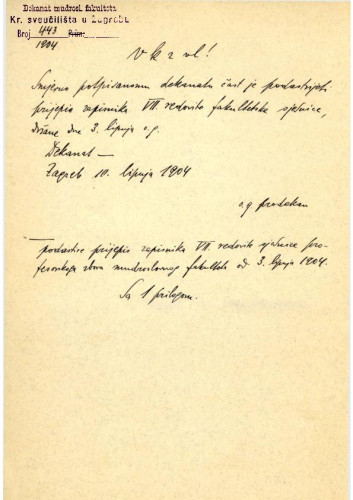 Dekanat mudrosl. fakulteta
Kr. sveučilišta u Zagrebu
Broj 443
1904
V k z vl!
Smjerno potpisanomu dekanatu čast je podastrijeti
prijepis zapisnika VII. redovite fakultetske sjednice,
držane dne 3. lipnja o.g.
Dekanat –
Zagreb 10. lipnja 1904
o.g. prodekan
podastire prijepis zapisnika VII. redovite sjednice pro-
fesorskoga zbora mudroslovnog fakulteta od 3. lipnja 1904.
Sa 1 prilogom.